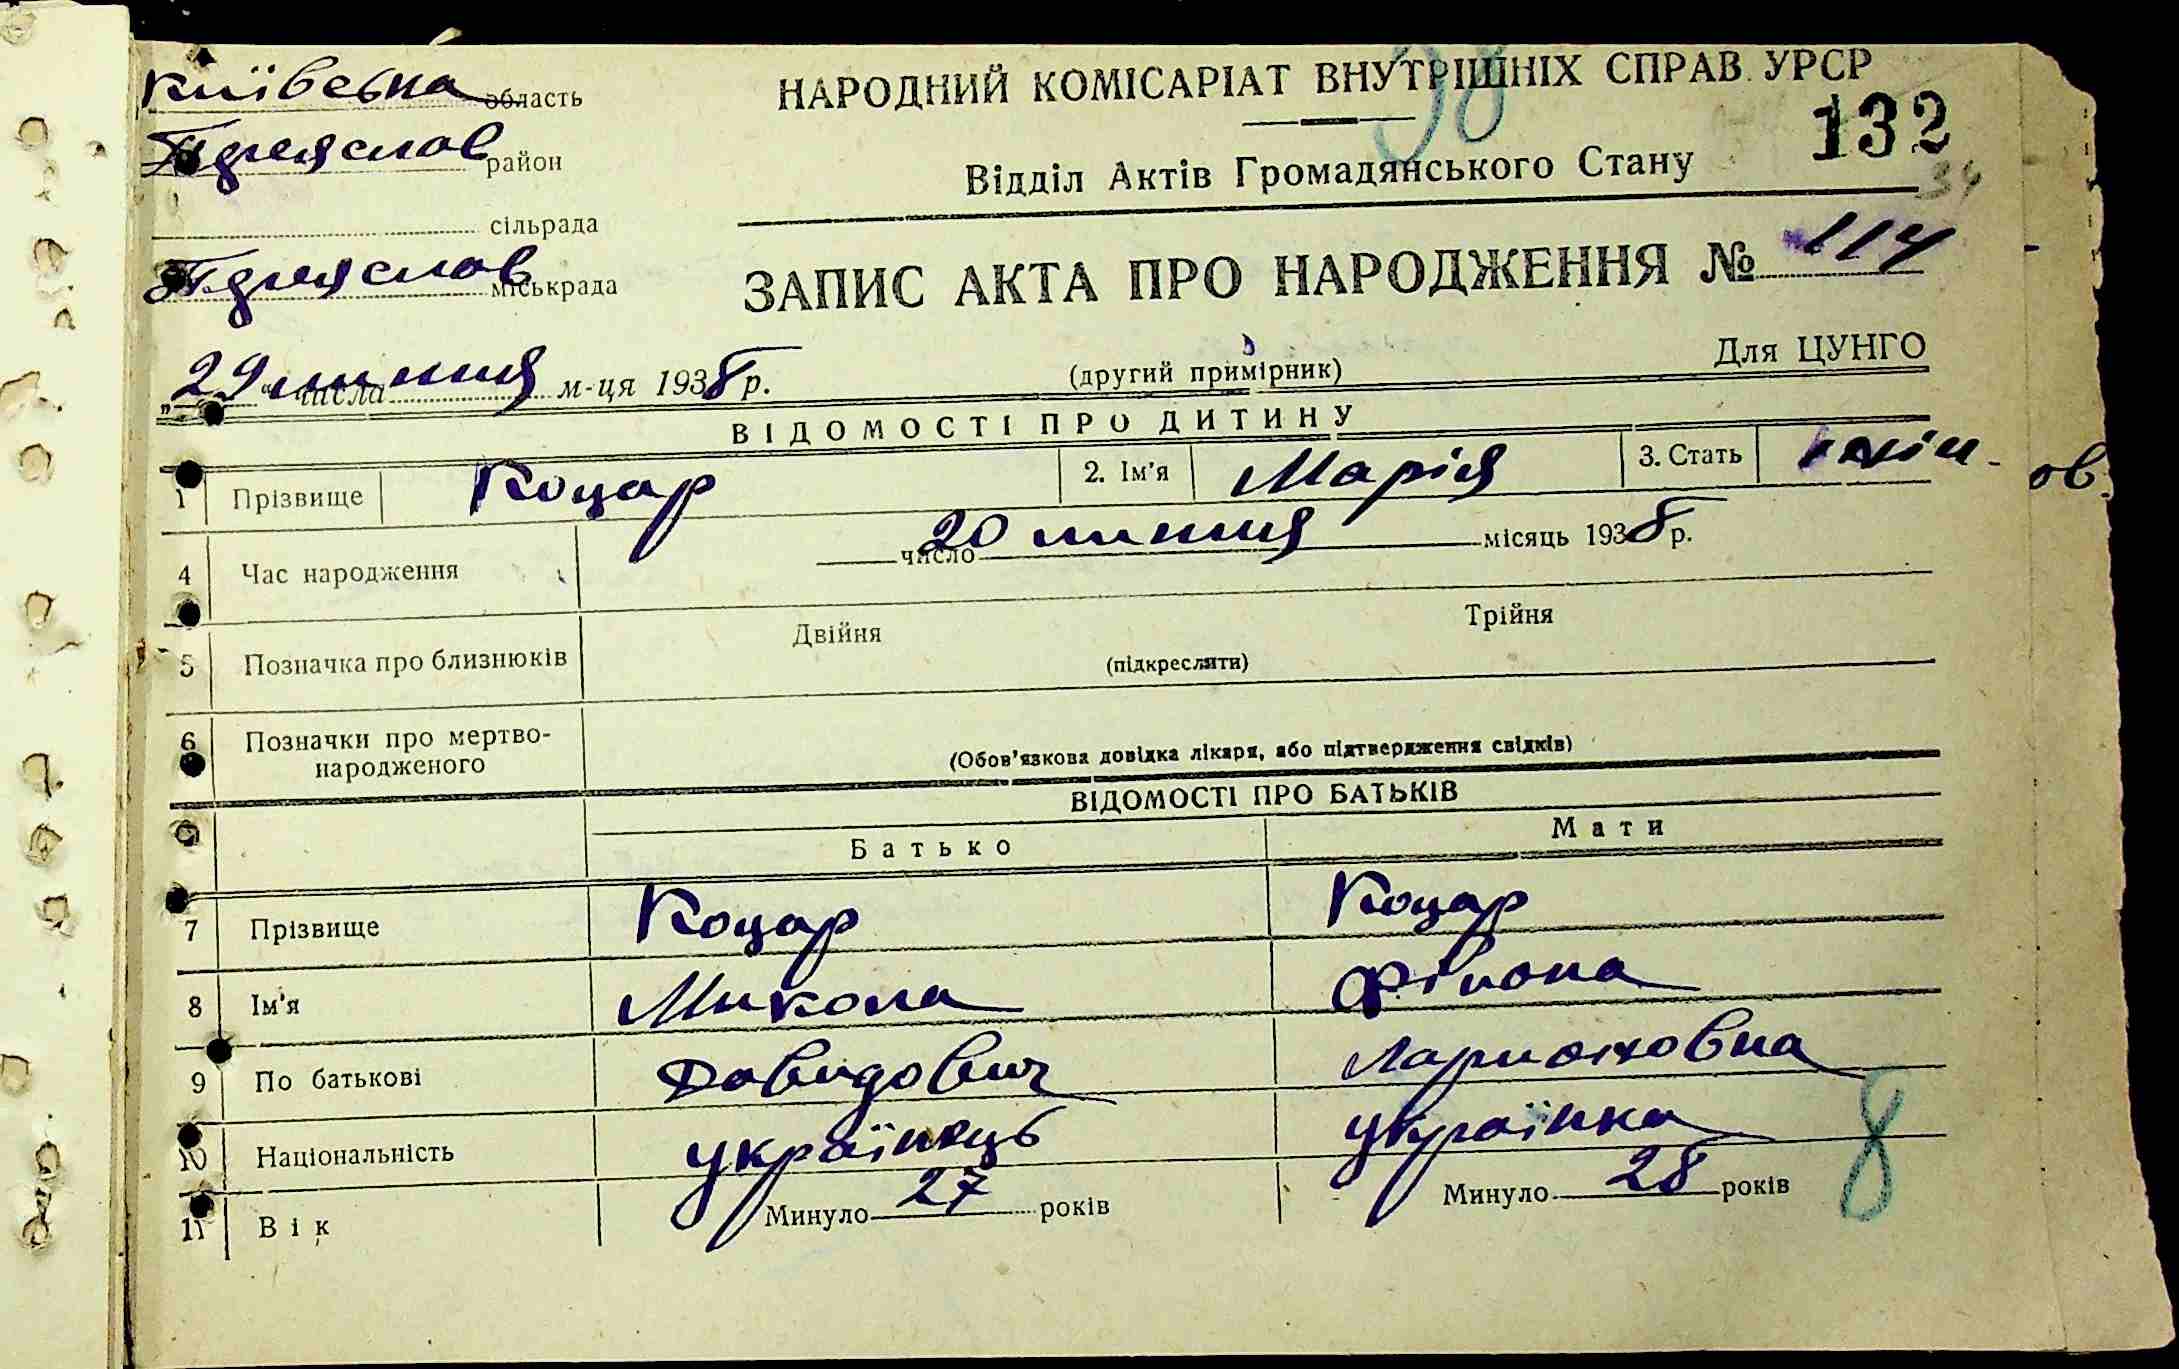 Київська область
НАРОДНИЙ КОМІСАРІАТ ВНУТРІШНІХ СПРАВ УРСР
98
132
Переяслав район
Відділ Актів Громадянського Стану
34
сільрада
Переяслав міськрада
ЗАПИС АКТА ПРО НАРОДЖЕННЯ № 114
„29“ числа липня м-ця 1938 р.
(другий примірник)
Для ЦУНГО
ВІДОМОСТІ ПРО ДИТИНУ
1 Прізвище Коцар 2. Ім'я Марія 3. Стать
4 Час народження число 20 липня місяць 1938 р.
5 Позначка про близнюків Двійня Трійня
(підкреслити)
6 Позначки про мертво-
народженого
(Обов'язкова довідка лікаря, або підтвердження свідків)
ВІДОМОСТІ ПРО БАТЬКІВ
Батько Мати
7 Прізвище Коцар Коцар
8 Ім'я Микола
9 По батькові Давидович
10 Національність українець українка
8
11 Вік Минуло 27 років Минуло 28 років